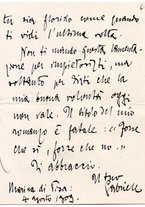 tu sia florido come quando
ti vidi l'ultima volta.
Non ti mando questa lamenta-
zione per impietosirti, ma
soltanto per dirti che la
mia buona volontà oggi
non vale. Il titolo del mio
romanzo è fatale: "Forse
che sì, forse che no".
Ti abbraccio.
Il tuo
Gabriele
Marina di Pisa:
4 agosto 1909.